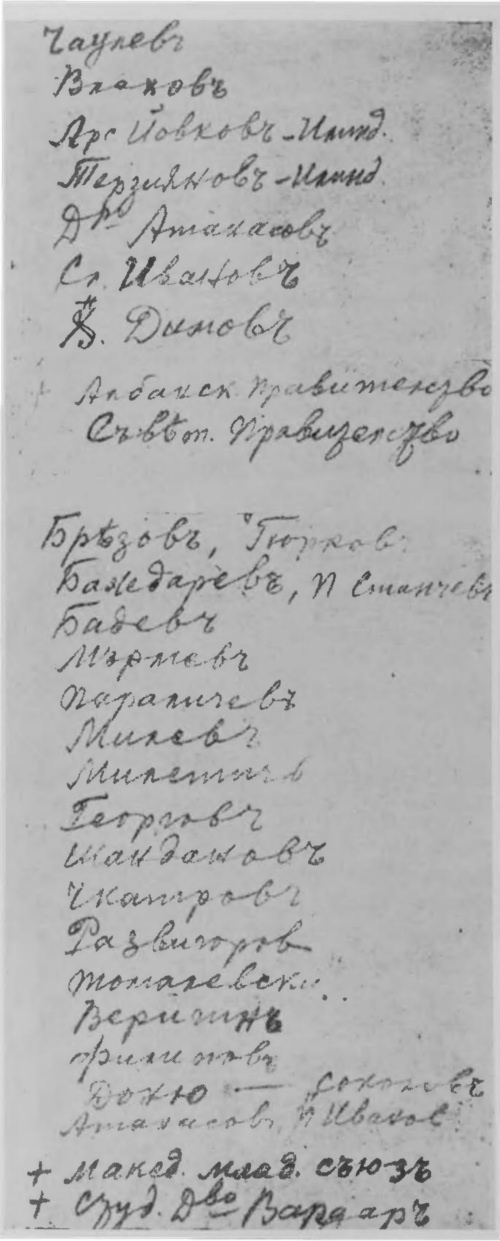 Чаулевъ
Влаховъ
Арс Йовковъ - Илинд.
Терзияновъ - Илинд.
Д-ръ Атанасовъ
Сл. Ивановъ
Димовъ
Албанск правителство
Съвѣт. Правителство
Брѣзовъ, Гюрковъ
Баждаревъ, П Станчевъ
Бадевъ
Мърмевъ
Параличевъ
Милевъ
Милетичъ
Георговъ
Шандановъ
Чкатровъ
Развигоров
Томалевски
Веригинъ
Филиповъ
Дончо — Соколовъ
Атанасовъ, П Иванов
+ Макед. млад. съюзъ
+ Студ. Д-во Вардаръ